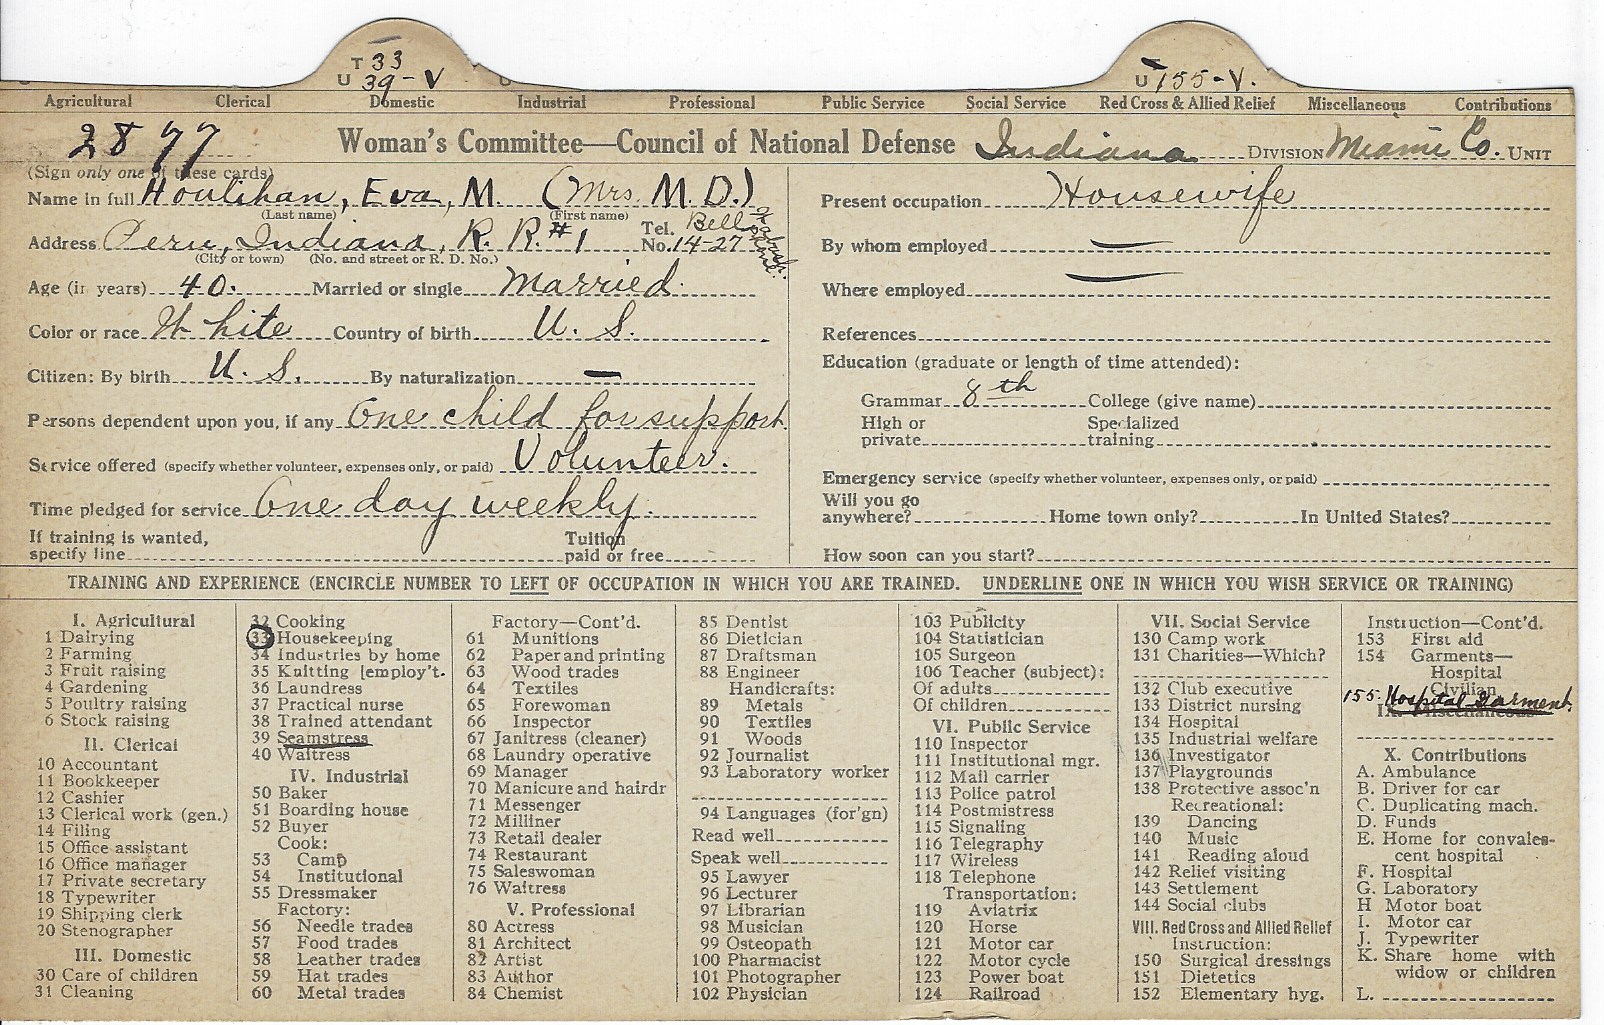 T 33
U 39-V
U 155-V.
Agricultural Clerical Domestic Industrial Professional Public Service Social Service Red Cross & Allied Relief Miscellaneous Contributions
2877 Woman's Committee—Council of National Defense Indiana DIVISION Miami Co. UNIT
(Sign only one of these cards)
Name in full Houlihan, Eva, M. (Mrs. M. D.)
(Last name) (First name)
Address Peru, Indiana, R. R. #1 Tel. No. Bell 14-27
(City or town) (No. and street or R. D. No.)
Age (in years) 40. Married or single Married.
Color or race White Country of birth U. S.
Citizen: By birth U. S. By naturalization —
Persons dependent upon you, if any One child for support.
Service offered (specify whether volunteer, expenses only, or paid) Volunteer.
Time pledged for service One day weekly.
If training is wanted,
specify line Tuition
paid or free
Present occupation Housewife
By whom employed —
Where employed —
References
Education (graduate or length of time attended):
Grammar 8th College (give name)
High or
private Specialized
training
Emergency service (specify whether volunteer, expenses only, or paid)
Will you go
anywhere? Home town only? In United States?
How soon can you start?
TRAINING AND EXPERIENCE (ENCIRCLE NUMBER TO LEFT OF OCCUPATION IN WHICH YOU ARE TRAINED. UNDERLINE ONE IN WHICH YOU WISH SERVICE OR TRAINING)
I. Agricultural
1 Dairying
2 Farming
3 Fruit raising
4 Gardening
5 Poultry raising
6 Stock raising
II. Clerical
10 Accountant
11 Bookkeeper
12 Cashier
13 Clerical work (gen.)
14 Filing
15 Office assistant
16 Office manager
17 Private secretary
18 Typewriter
19 Shipping clerk
20 Stenographer
III. Domestic
30 Care of children
31 Cleaning
32 Cooking
33 Housekeeping
34 Industries by home
35 Knitting [employ't.
36 Laundress
37 Practical nurse
38 Trained attendant
39 Seamstress
40 Waitress
IV. Industrial
50 Baker
51 Boarding house
52 Buyer
Cook:
53 Camp
54 Institutional
55 Dressmaker
Factory:
56 Needle trades
57 Food trades
58 Leather trades
59 Hat trades
60 Metal trades
Factory—Cont'd.
61 Munitions
62 Paper and printing
63 Wood trades
64 Textiles
65 Forewoman
66 Inspector
67 Janitress (cleaner)
68 Laundry operative
69 Manager
70 Manicure and hairdr
71 Messenger
72 Milliner
73 Retail dealer
74 Restaurant
75 Saleswoman
76 Waitress
V. Professional
80 Actress
81 Architect
82 Artist
83 Author
84 Chemist
85 Dentist
86 Dietician
87 Draftsman
88 Engineer
Handicrafts:
89 Metals
90 Textiles
91 Woods
92 Journalist
93 Laboratory worker
94 Languages (for'gn)
Read well
Speak well
95 Lawyer
96 Lecturer
97 Librarian
98 Musician
99 Osteopath
100 Pharmacist
101 Photographer
102 Physician
103 Publicity
104 Statistician
105 Surgeon
106 Teacher (subject):
Of adults
Of children
VI. Public Service
110 Inspector
111 Institutional mgr.
112 Mail carrier
113 Police patrol
114 Postmistress
115 Signaling
116 Telegraphy
117 Wireless
118 Telephone
Transportation:
119 Aviatrix
120 Horse
121 Motor car
122 Motor cycle
123 Power boat
124 Railroad
VII. Social Service
130 Camp work
131 Charities—Which?
132 Club executive
133 District nursing
134 Hospital
135 Industrial welfare
136 Investigator
137 Playgrounds
138 Protective assoc'n
Recreational:
139 Dancing
140 Music
141 Reading aloud
142 Relief visiting
143 Settlement
144 Social clubs
VIII. Red Cross and Allied Relief
Instruction:
150 Surgical dressings
151 Dietetics
152 Elementary hyg.
Instruction—Cont'd.
153 First aid
154 Garments—
Hospital
Civilian
155. Hospital Garment.
IX. Miscellaneous
X. Contributions
A. Ambulance
B. Driver for car
C. Duplicating mach.
D. Funds
E. Home for convales-
cent hospital
F. Hospital
G. Laboratory
H Motor boat
I. Motor car
J. Typewriter
K. Share home with
widow or children
L.